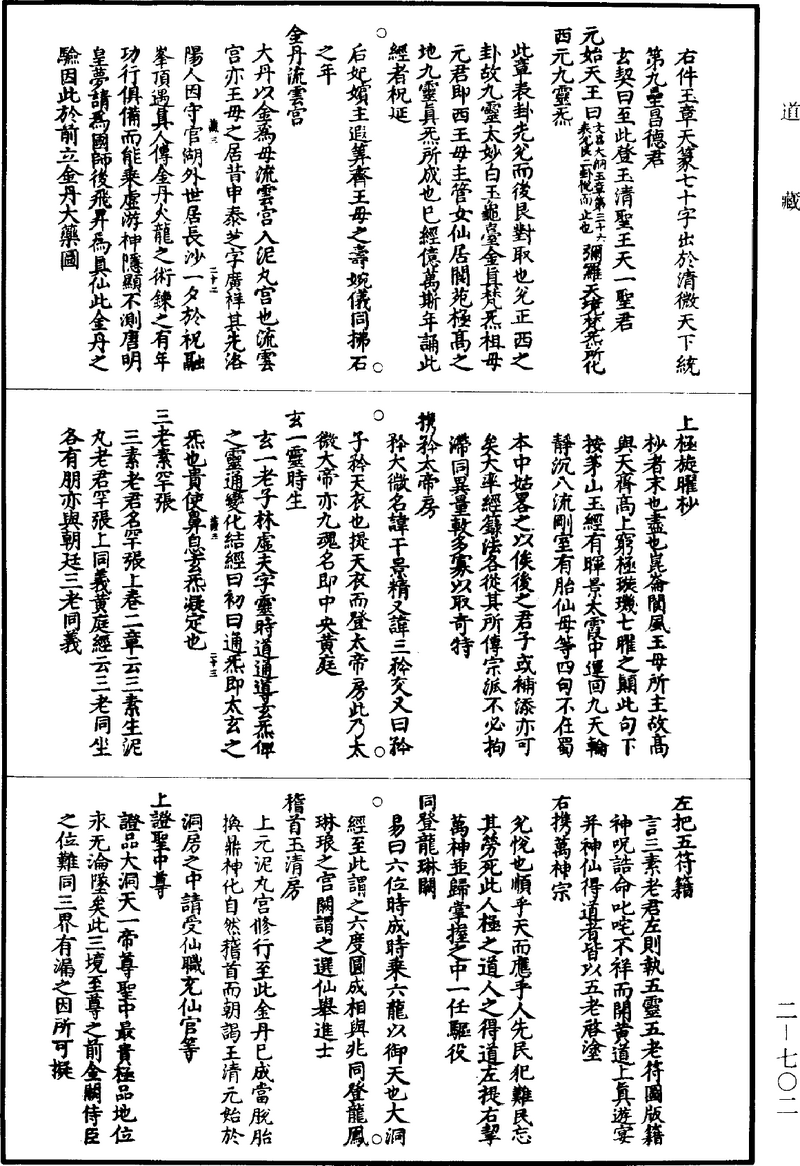 道藏
右件玉章天篆七十字出於清微天下統
第九壘昌德君
玄契曰至此登玉清聖王天一聖君
元始天王曰文昌大洞玉章第三十六表兌艮二卦悅而止也彌羅天境梵炁所化
西元九靈炁
此章表卦先兌而後艮對取也兌正西之
卦故九靈太妙白玉龜臺金真梵炁祖母
元君即西王母主管女仙居閬苑極髙之
地九靈真炁所成也已經億萬斯年誦此
經者祝延
后妃嬪主遐筭齊王母之壽婉儀同拂石
之年
金丹流雲宫
大丹以金為母流雲宫入泥丸宫也流雲
宫亦王母之居昔申泰芝字廣祥其先洛
陽人因守官湖外世居長沙一夕於祝融
峯頂遇真人傳金丹火龍之術鍊之有年
功行俱備而能乗虚游神隱顯不測唐明
皇夢請為國師後飛昇為真仙此金丹之
驗因此於前立金丹大藥圖
上極旋曜杪
杪者末也盡也崑崙閬風王母所主故髙
與天齊髙上窮極璇璣七曜之顛此句下
按茅山玉經有暉景太霞中運回九天輪
靜沉八流剛室有胎仙母等四句不在蜀
本中姑畧之以俟後之君子或補添亦可
矣大率經籙法各從其所傳宗派不必拘
滯同異量數多寡以取奇特
携矜太帝房
矜大微名諱干景精又諱三矜交又曰矜
子矜天衣也提天衣而登太帝房此乃太
微大帝亦九魂名即中央黄庭
玄一靈時生
玄一老子林虚夫字靈時道通導玄炁俾
之靈通變化結經曰初曰通炁即太玄之
炁也貴使鼻息玄炁凝定也
三老素罕張
三素老君名罕張上卷二章云三素生泥
丸老君罕張上同義黄庭經云三老同坐
各有朋亦與朝廷三老同義
左把五符籍
言三素老君左則執五靈五老符圖版籍
神呪誥命叱咤不祥而開黄道上真遊宴
并神仙得道者皆以五老啓塗
右携萬神宗
兌悅也順乎天而應乎人先民犯難民忘
其勞死此人極之道人之得道左提右挈
萬神並歸掌握之中一任驅役
同登龍琳闕
易曰六位時成時乗六龍以御天也大洞
經至此謂之六度圓成相與兆同登龍鳳
琳琅之宫闕謂之選仙舉進士
稽首玉清房
上元泥丸宫修行至此金丹已成當脫胎
換鼎神化自然稽首而朝謁玉清元始於
洞房之中請受仙職充仙官等
上證聖中尊
證品大洞天一帝尊聖中最貴極品地位
永无淪墜矣此三境至尊之前金闕侍臣
之位難同三界有漏之因所可擬
二—七〇二